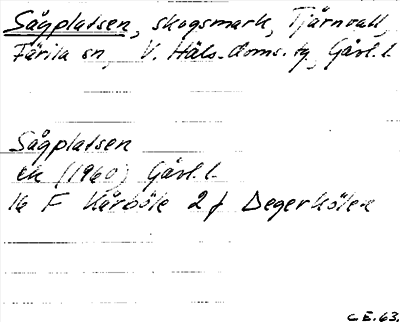 Sågplatsen, skogsmark, Tjärnvall,
Färila sn, V. Häls. doms. tg, Gävl. l.
Sågplatsen
ek (1960) Gävl. l.
16 F Kårböle 2 f Degerkölen
C.E. 63.